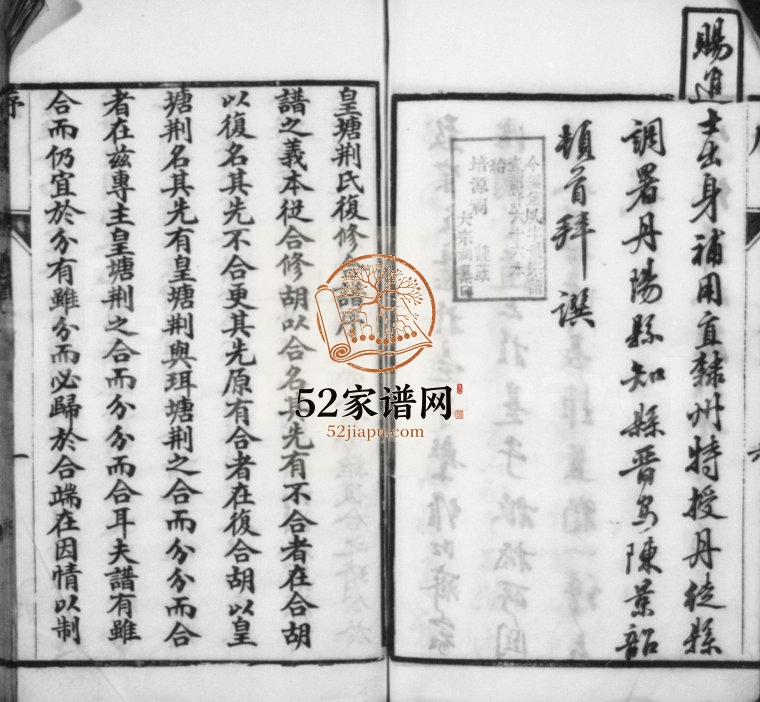 賜進士出身補用直隸州特授丹徒縣
調署丹陽縣知縣晉
陳景韶
頓首拜譔
培源祠
皇塘荆氏復修
譜序
譜之義本從合修胡以合名其先有不合者在合胡
以復名其先不合更其先原有合者在復合胡以皇
塘荆名其先有皇塘荆與珥塘荆之合而分分而合
者在兹專主皇塘荆之合而分分而合耳夫譜有雖
合而仍宜於分有雖分而必歸於合端在因情以制
序
一
52家谱网
52jiapu.com